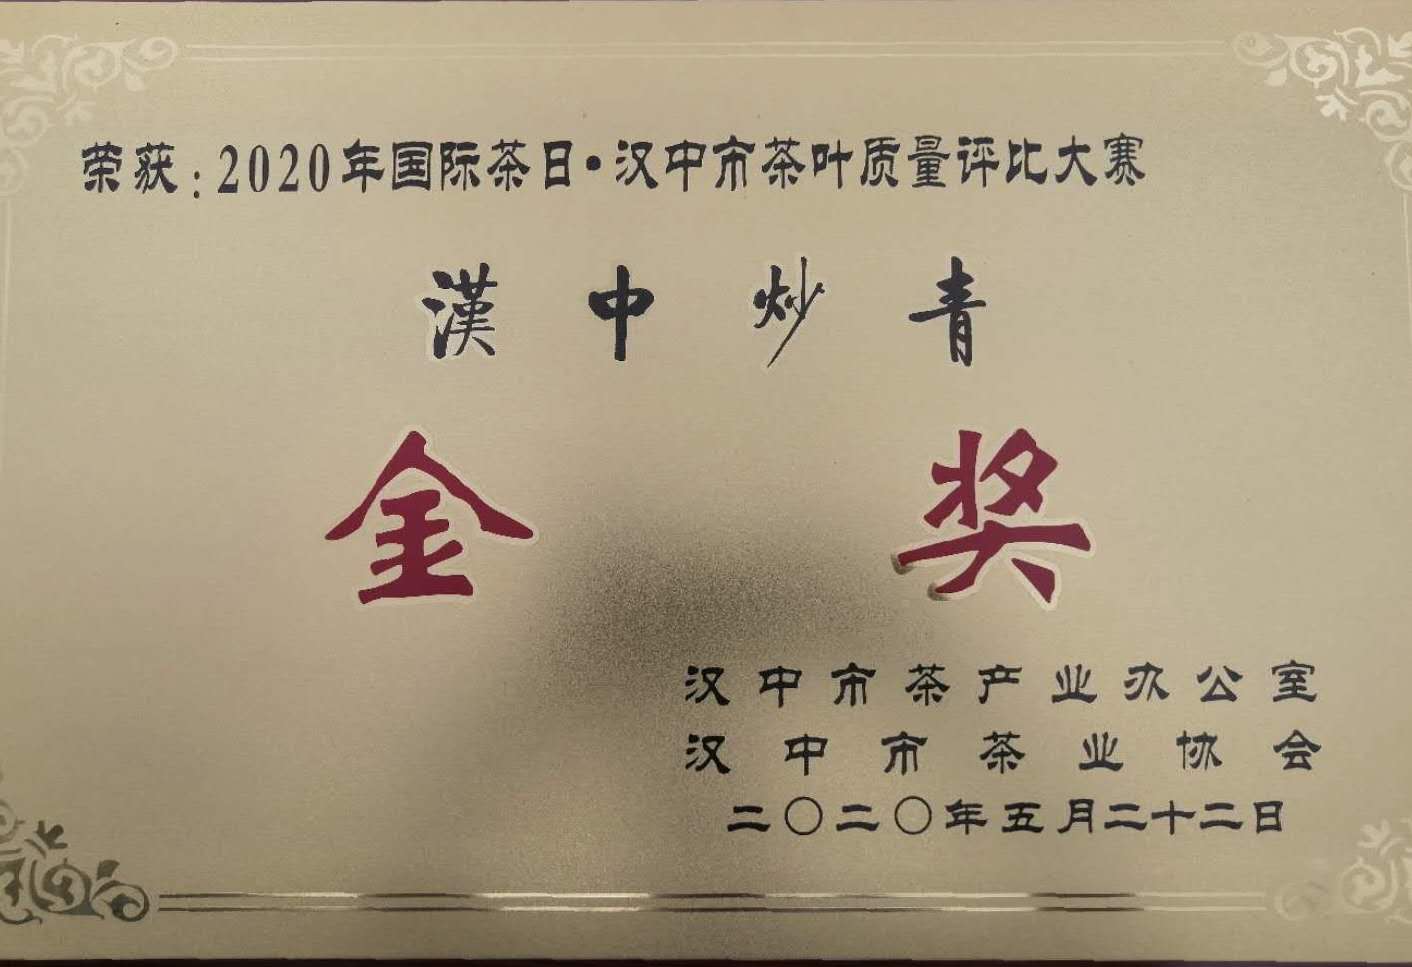 荣获:2020年国际茶日·汉中市茶叶质量评比大赛
漢中炒青
金奖
汉中市茶产业办公室
汉中市茶业协会
二〇二〇年五月二十二日